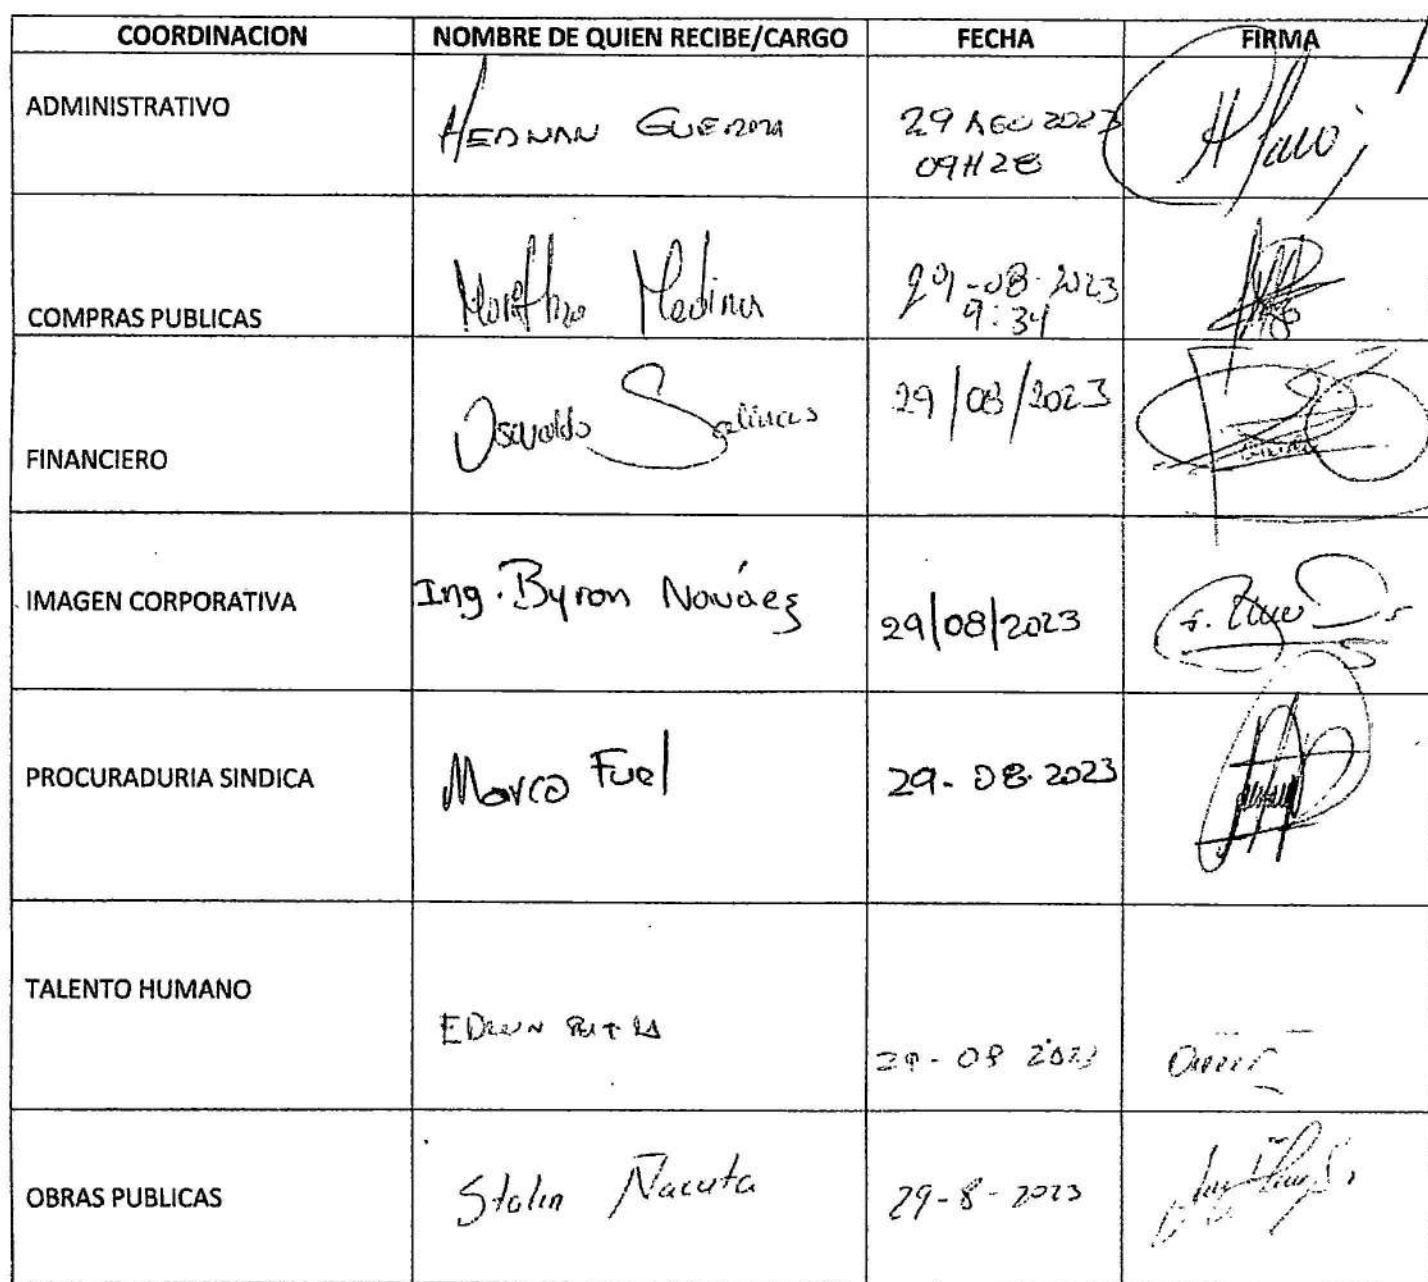 COORDINACION NOMBRE DE QUIEN RECIBE/CARGO FECHA FIRMA
ADMINISTRATIVO HERNAN GUERRA 29 AGO 2023
09H28
COMPRAS PUBLICAS Medina 29-08-2023
9:34
FINANCIERO Oswaldo Salinas 29/08/2023
IMAGEN CORPORATIVA Ing. Byron Naváez 29/08/2023
PROCURADURIA SINDICA Marco Fuel 29-08-2023
TALENTO HUMANO EDWIN 29-08 2023
OBRAS PUBLICAS Stalin Ñacata 29-8-2023